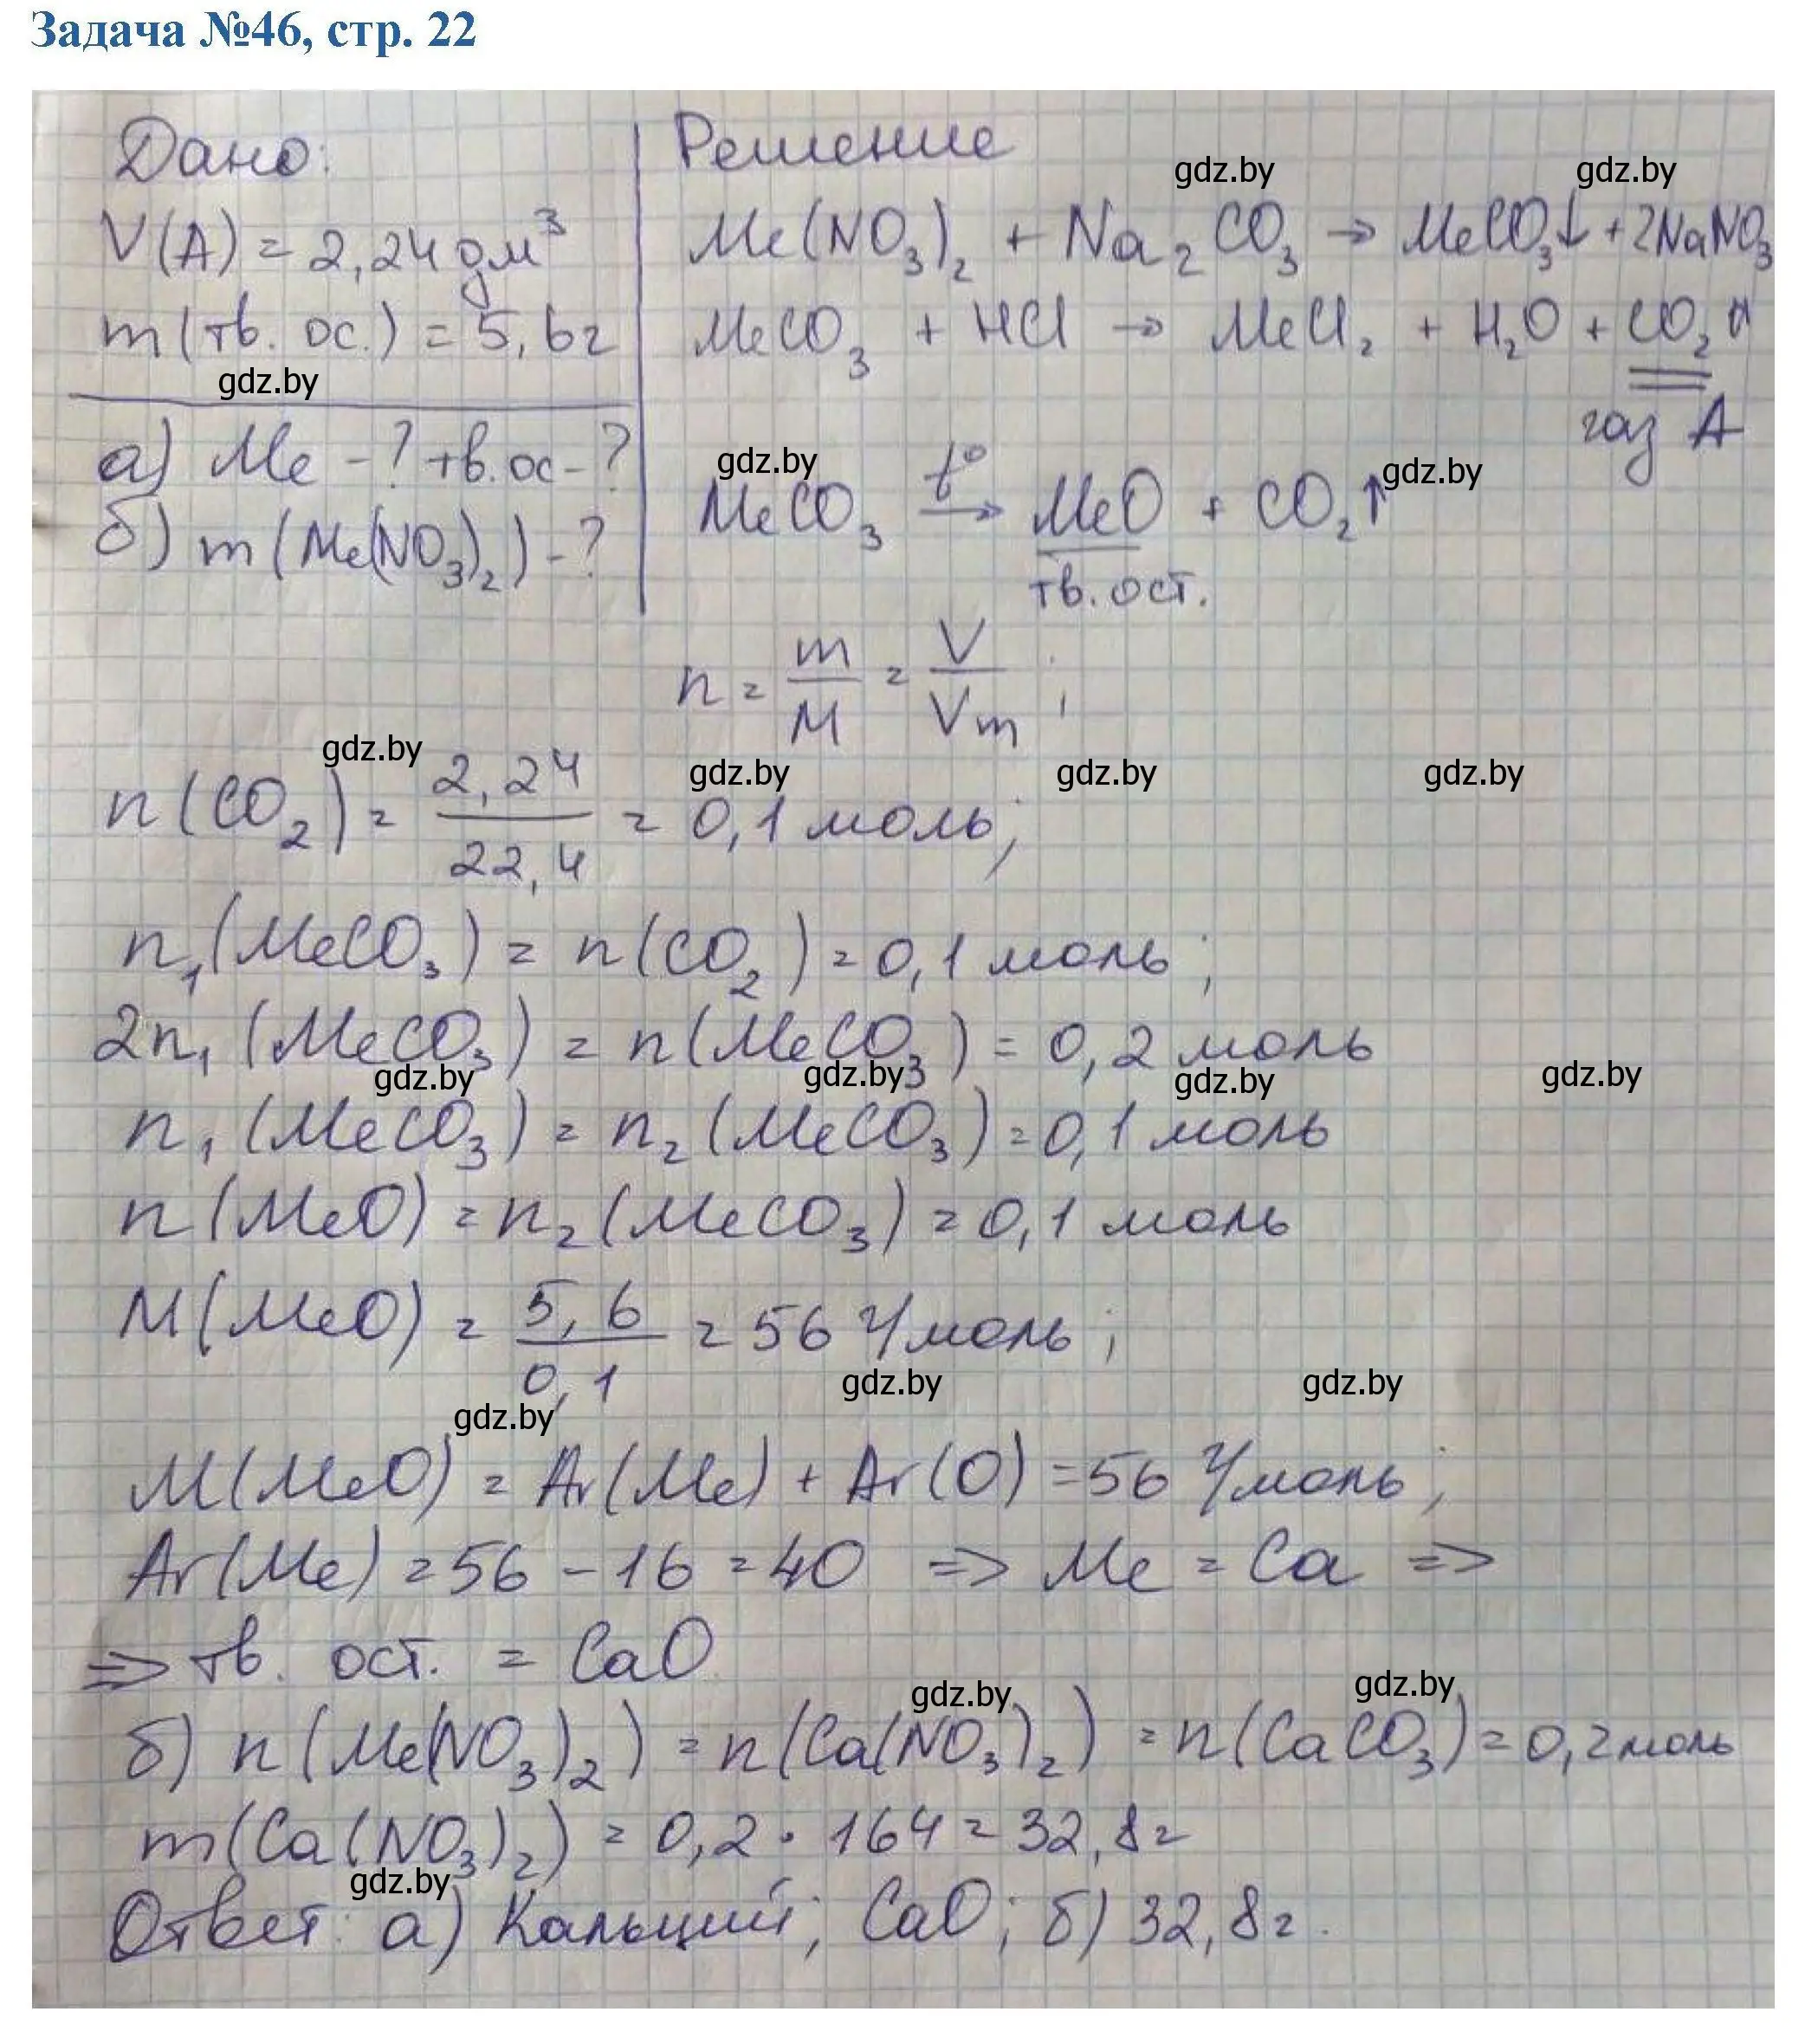 Задача №46, стр. 22
Дано:
V(A) = 2,24 дм³
m(тв. ос.) = 5,6г
gdz.by
а) Me -? тв. ос -?
б) m(Me(NO₃)₂) -?
Решение
gdz.by gdz.by
Me(NO₃)₂ + Na₂CO₃ → MeCO₃↓ + 2NaNO₃
MeCO₃ + HCl → MeCl₂ + H₂O + CO₂↑
газ A
gdz.by gdz.by
MeCO₃ t°→ MeO + CO₂↑
тв. ост.
n = m/M = V/Vm ;
gdz.by gdz.by gdz.by gdz.by
n(CO₂) = 2,24/22,4 = 0,1 моль;
n₁(MeCO₃) = n(CO₂) = 0,1 моль;
2n₁(MeCO₃) = n(MeCO₃) = 0,2 моль
gdz.by gdz.by gdz.by gdz.by
n₁(MeCO₃) = n₂(MeCO₃) = 0,1 моль
n(MeO) = n₂(MeCO₃) = 0,1 моль
M(MeO) = 5,6/0,1 = 56 г/моль;
gdz.by gdz.by gdz.by
M(MeO) = Ar(Me) + Ar(O) = 56 г/моль;
Ar(Me) = 56 - 16 = 40 => Me = Ca =>
=> тв. ост. = CaO
gdz.by gdz.by
б) n(Me(NO₃)₂) = n(Ca(NO₃)₂) = n(CaCO₃) = 0,2 моль
m(Ca(NO₃)₂) = 0,2 · 164 = 32,8г
gdz.by
Ответ: а) Кальций; CaO; б) 32,8г.